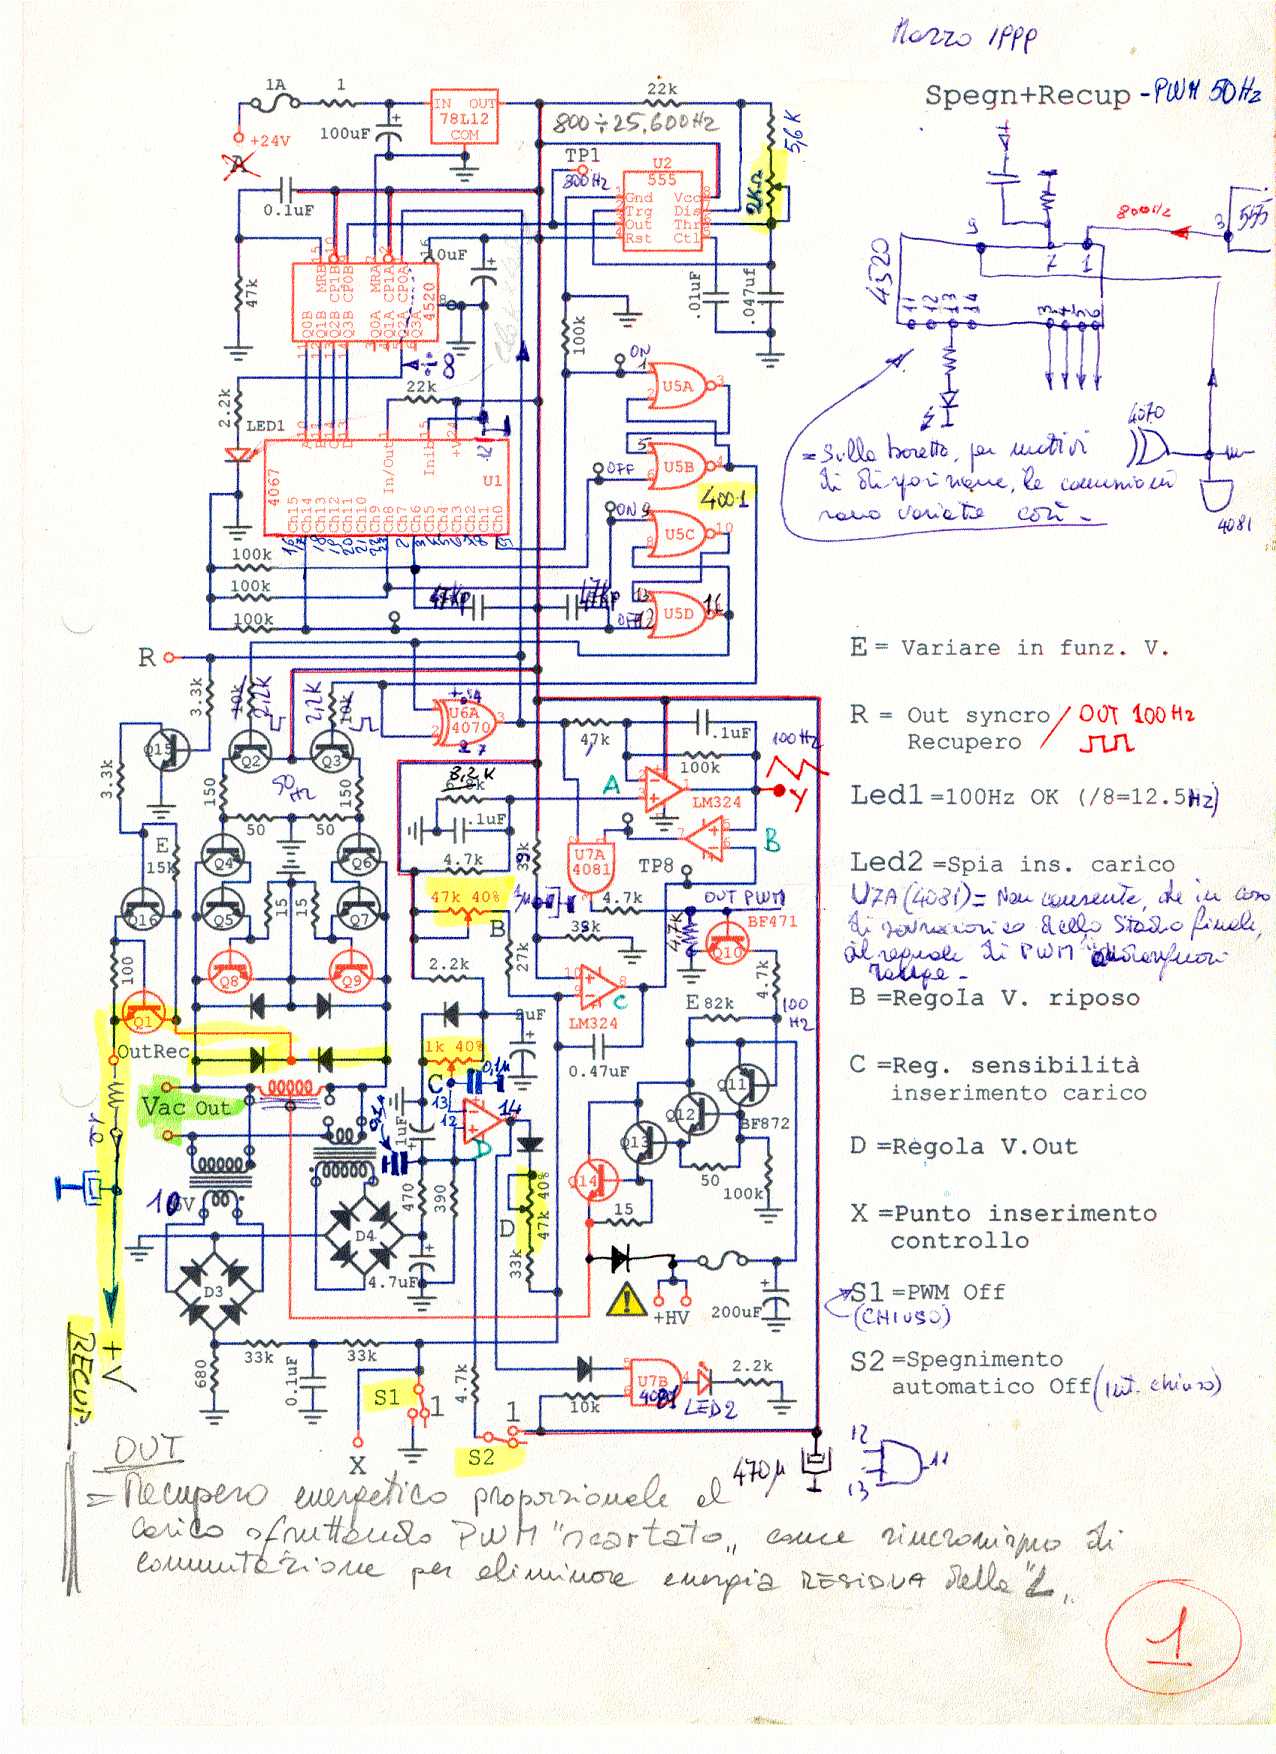 Marzo 1999
Spegn+Recup - PWM 50Hz
1A
1
IN OUT
78L12
COM
22k
+24V
100uF
800÷25,600Hz
5,6K
TP1
800Hz
U2
555
2KΩ
0.1uF
Gnd Vcc
Trg Dis
Out Thr
Rst Ctl
800Hz
3
555
9
7 1
4520
11 12 13 14
3 4 5 6
MRB CP1B CP0B MRA CP1A CP0A
10uF
4520
47k
Q0B Q1B Q2B Q3B Q0A Q1A Q2A Q3A
.01uF
.047uf
100k
ON
÷8
22k
U5A
2.2k
LED1
4070
U5B
OFF
4001
4067
In/Out
Inib
+V
U1
Ch15 Ch14 Ch13 Ch12 Ch11 Ch10 Ch9 Ch8 Ch7 Ch6 Ch5 Ch4 Ch3 Ch2 Ch1 Ch0
= Sulla
per motivi
di
le connessioni
sono variate così -
4081
ON
U5C
100k
100k
100k
47Kp
47Kp
OFF
U5D
R
E = Variare in funz. V.
3.3k
10k 2,2K
2,2K 10k
U6A
4070
R = Out syncro / OUT 100Hz
Recupero
Q15
Q2
Q3
47k
.1uF
100k
100Hz
3.3k
150
50Hz
150
8,2K
6.8k
A
LM324
Y
Led1=100Hz OK (/8=12.5Hz)
50
50
.1uF
B
E
15k
Q4
Q6
4.7k
39k
U7A
4081
TP8
Led2 =Spia ins. carico
U7A(4081)= Non consente, che in caso
di saturazione dello Stadio finale,
il segnale di PWM
Q16
Q5
15
15
Q7
47k 40%
B
1µ
4.7k
OUT PWM
BF471
4,7K
39k
Q10
100
Q8
Q9
2.2k
27k
C
LM324
4.7k
B =Regola V. riposo
Q1
E
82k
100
HZ
OutRec
1k 40%
0.47uF
C =Reg. sensibilità
inserimento carico
Vac Out
C
0,1µ
13
12
14
D
Q11
Q12
BF872
Q13
1Ω
.1uF
50
100k
D =Regola V.Out
10
Q14
470
390
D
47k 40%
15
X =Punto inserimento
controllo
D4
33k
D3
4.7uF
+HV
200uF
S1 =PWM Off
(CHIUSO)
RECUP.
+V
680
33k
0.1uF
33k
S2 =Spegnimento
automatico Off (Int. chiuso)
S1
1
4.7k
U7B
4081
10k
LED2
2.2k
X
S2
1
470µ
12
13
11
OUT
= Recupero energetico proporzionale al
carico sfruttando PWM "scartato" come sincronismo di
commutazione per eliminare energia RESIDUA della "L"
1